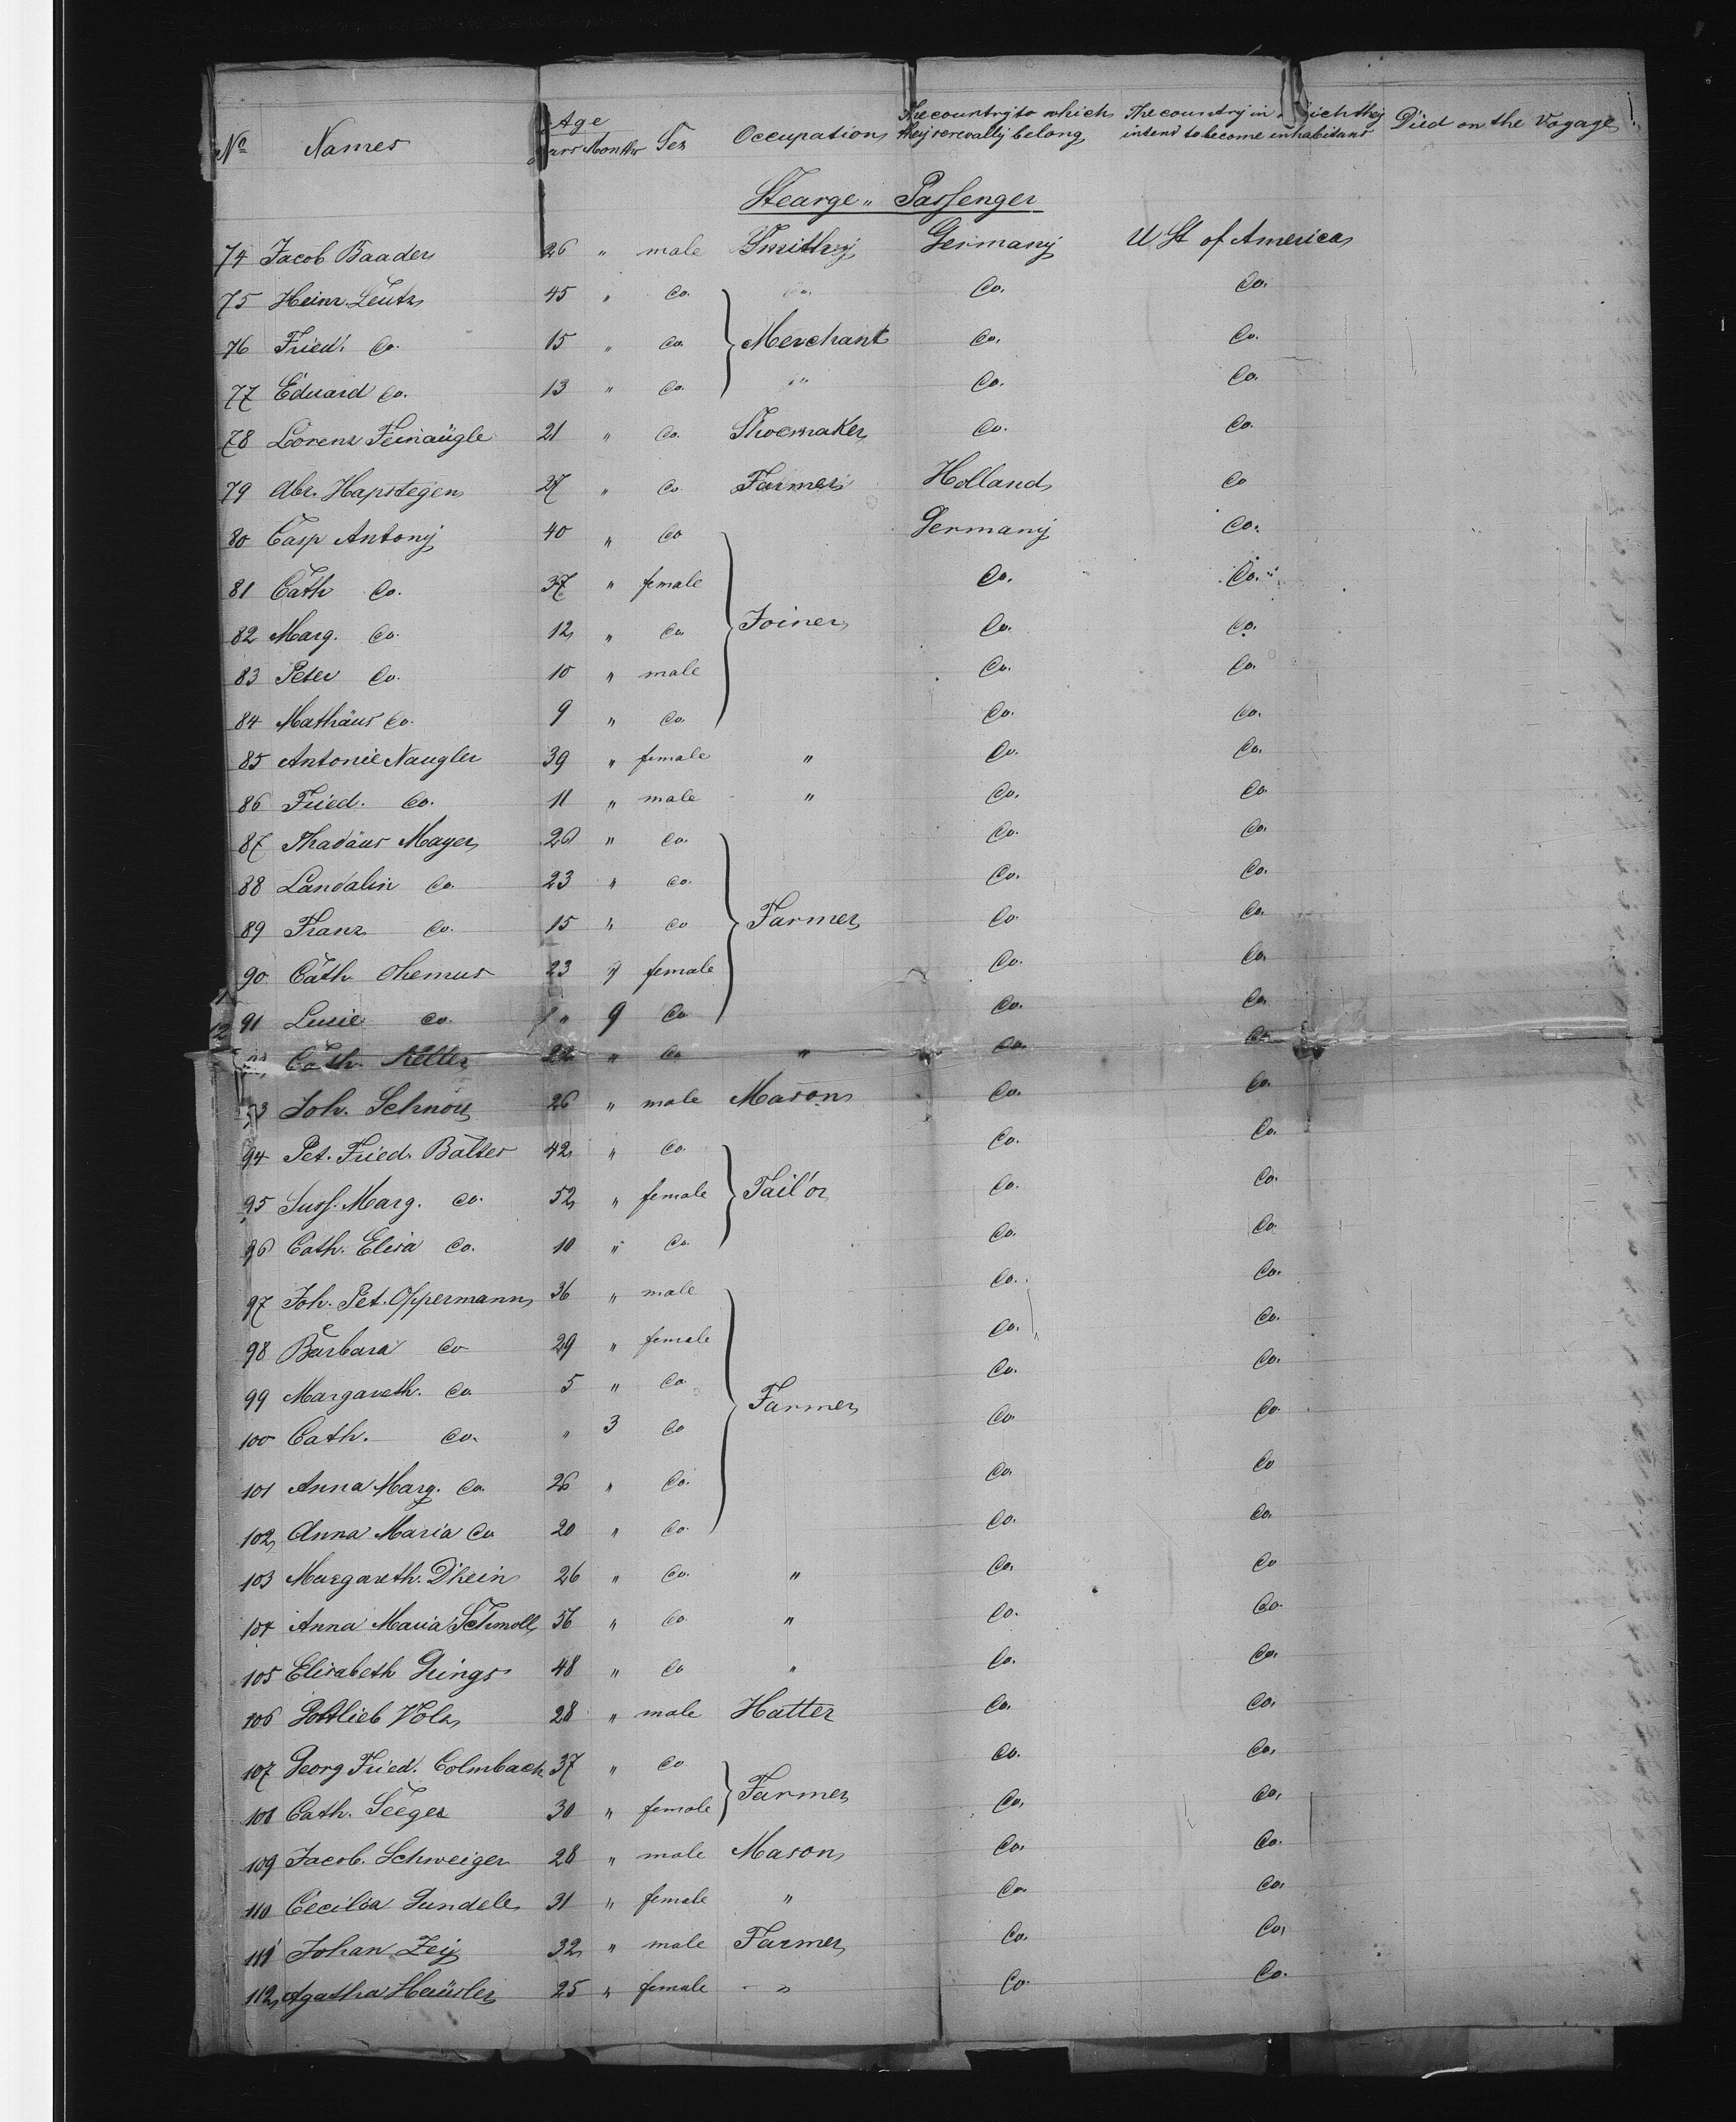 No Names Age Years Months Sex Occupation The country to which they severally belong The country in which they intend to become inhabitans Died on the Voyage
Stearge " Passenger
74 Jacob Baader 26 " male Smithy Germany U St of America
75 Heinr. Leutz 45 " Co. Co. Co. Co.
76 Fried. Co. 15 " Co. Merchant Co. Co.
77 Eduard Co. 13 " Co. " Co. Co.
78 Lorenz Feinaügle 21 " Co. Shoemaker Co. Co.
79 Abr. Hapstegen 27 " Co. Farmer Holland Co
80 Casp Antony 40 " Co Germany Co.
81 Cath Co. 37 " female Co. Co.
82 Marg. Co. 12 " Co. Joiner Co. Co.
83 Peter Co. 10 " male Co. Co.
84 Mathäus Co. 9 " Co. Co. Co.
85 Antonie Naugler 39 " female " Co. Co.
86 Fried. Co. 11 " male " Co. Co.
87 Thadäus Mayer " Co. Co. Co.
88 Landalin Co. 23 " Co. Co. Co.
89 Franz Co. 15 " Co Farmer Co. Co.
90 Cath. Ohemus 23 " female Co. Co.
91 Lusie Co. " 9 Co Co. Co.
Cath. Keller 22 " Co " Co. Co.
93 Joh. Schnou 26 " male Mason Co. Co.
94 Pet. Fried. Balter 42 " Co. Co. Co.
95 Suss. Marg. Co. 52 " female Tailor Co. Co.
96 Cath. Elisa Co. 10 " Co. Co. Co.
97 Joh. Pet. Oppermann 36 " male Co. Co.
98 Barbara Co 29 " female Co. Co.
99 Margareth. Co. 5 " Co Farmer Co. Co.
100 Cath. Co. " 3 Co Co. Co.
101 Anna Marg. Co. 26 " Co. Co. Co
102 Anna Maria Co 20 " Co. Co. Co.
103 Margareth. Dhein 26 " Co. " Co. Co
104 Anna Maria Schmoll 56 " Co. " Co. Co.
105 Elisabeth Grings 48 " Co " Co. Co.
106 Gottlieb Volz 28 " male Hatter Co. Co.
107 Georg Fried. Colmbach 37 " Co Co. Co.
108 Cath. Seeger 30 " female Farmer Co. Co.
109 Jacob. Schweiger 28 " male Mason Co. Co.
110 Cecilia Gundele 31 " female " Co. Co.
111 Johan Zey 32 " male Farmer Co. Co.
112 Agatha Haüsler 25 " female " Co. Co.